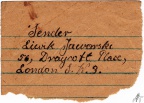 Sender
Liwk Jaworski
56, Draycott Place,
London S.W.3.